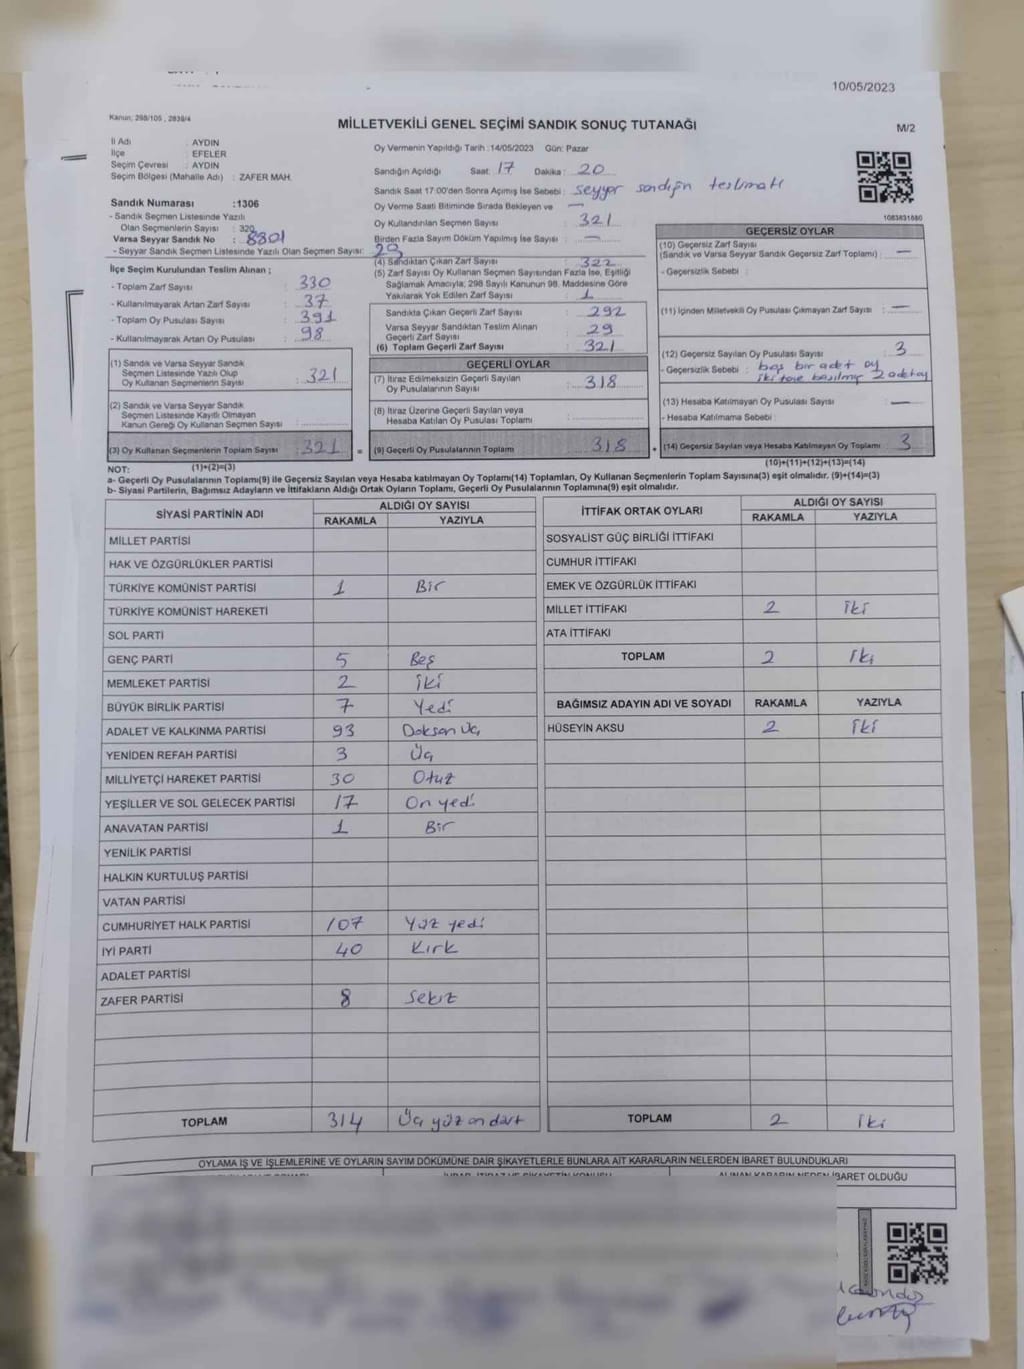 10/05/2023
Kanun: 298/105 , 2839/4
MİLLETVEKİLİ GENEL SEÇİMİ SANDIK SONUÇ TUTANAĞI
M/2
İl Adı : AYDIN
İlçe : EFELER
Seçim Çevresi : AYDIN
Seçim Bölgesi (Mahalle Adı) : ZAFER MAH.
Oy Vermenin Yapıldığı Tarih :14/05/2023 Gün: Pazar
Sandığın Açıldığı Saat: 17 Dakika : 20
Sandık Saat 17:00'den Sonra Açımış İse Sebebi : seyyar sandığın teslimatı
Oy Verme Saati Bitiminde Sırada Bekleyen ve —
Oy Kullandırılan Seçmen Sayısı : 321
Birden Fazla Sayım Döküm Yapılmış İse Sayısı : —
Sandık Numarası :1306
- Sandık Seçmen Listesinde Yazılı
Olan Seçmenlerin Sayısı : 320
Varsa Seyyar Sandık No : 8801
- Seyyar Sandık Seçmen Listesinde Yazılı Olan Seçmen Sayısı: 29
İlçe Seçim Kurulundan Teslim Alınan ;
- Toplam Zarf Sayısı : 330
- Kullanılmayarak Artan Zarf Sayısı : 37
- Toplam Oy Pusulası Sayısı : 391
- Kullanılmayarak Artan Oy Pusulası : 98
(1) Sandık ve Varsa Seyyar Sandık
Seçmen Listesinde Yazılı Olup
Oy Kullanan Seçmenlerin Sayısı : 321
(2) Sandık ve Varsa Seyyar Sandık
Seçmen Listesinde Kayıtlı Olmayan
Kanun Gereği Oy Kullanan Seçmen Sayısı :
(3) Oy Kullanan Seçmenlerin Toplam Sayısı : 321
(4) Sandıktan Çıkan Zarf Sayısı : 322
(5) Zarf Sayısı Oy Kullanan Seçmen Sayısından Fazla İse, Eşitliği
Sağlamak Amacıyla; 298 Sayılı Kanunun 98. Maddesine Göre
Yakılarak Yok Edilen Zarf Sayısı : 1
Sandıkta Çıkan Geçerli Zarf Sayısı : 292
Varsa Seyyar Sandıktan Teslim Alınan
Geçerli Zarf Sayısı : 29
(6) Toplam Geçerli Zarf Sayısı : 321
GEÇERLİ OYLAR
(7) İtiraz Edilmeksizin Geçerli Sayılan
Oy Pusulalarının Sayısı : 318
(8) İtiraz Üzerine Geçerli Sayılan veya
Hesaba Katılan Oy Pusulası Toplamı :
= (9) Geçerli Oy Pusulalarının Toplamı : 318 +
1083831880
GEÇERSİZ OYLAR
(10) Geçersiz Zarf Sayısı
(Sandık ve Varsa Seyyar Sandık Geçersiz Zarf Toplamı) : —
- Geçersizlik Sebebi :
(11) İçinden Milletvekili Oy Pusulası Çıkmayan Zarf Sayısı : —
(12) Geçersiz Sayılan Oy Pusulası Sayısı : 3
- Geçersizlik Sebebi : boş bir adet oy
iki tane basılmış 2 adet oy
(13) Hesaba Katılmayan Oy Pusulası Sayısı : —
- Hesaba Katılmama Sebebi :
(14) Geçersiz Sayılan veya Hesaba Katılmayan Oy Toplamı : 3
NOT: (1)+(2)=(3) (10)+(11)+(12)+(13)=(14)
a- Geçerli Oy Pusulalarının Toplamı(9) ile Geçersiz Sayılan veya Hesaba katılmayan Oy Toplamı(14) Toplamları, Oy Kullanan Seçmenlerin Toplam Sayısına(3) eşit olmalıdır. (9)+(14)=(3)
b- Siyasi Partilerin, Bağımsız Adayların ve İttifakların Aldığı Ortak Oyların Toplamı, Geçerli Oy Pusulalarının Toplamına(9) eşit olmalıdır.
SİYASİ PARTİNİN ADI ALDIĞI OY SAYISI
RAKAMLA YAZIYLA
MİLLET PARTİSİ
HAK VE ÖZGÜRLÜKLER PARTİSİ
TÜRKİYE KOMÜNİST PARTİSİ 1 Bir
TÜRKİYE KOMÜNİST HAREKETİ
SOL PARTİ
GENÇ PARTİ 5 Beş
MEMLEKET PARTİSİ 2 İki
BÜYÜK BİRLİK PARTİSİ 7 Yedi
ADALET VE KALKINMA PARTİSİ 93 Doksan Üç
YENİDEN REFAH PARTİSİ 3 Üç
MİLLİYETÇİ HAREKET PARTİSİ 30 Otuz
YEŞİLLER VE SOL GELECEK PARTİSİ 17 On yedi
ANAVATAN PARTİSİ 1 Bir
YENİLİK PARTİSİ
HALKIN KURTULUŞ PARTİSİ
VATAN PARTİSİ
CUMHURİYET HALK PARTİSİ 107 Yüz yedi
İYİ PARTİ 40 Kırk
ADALET PARTİSİ
ZAFER PARTİSİ 8 Sekiz
TOPLAM 314 Üç yüz on dört
İTTİFAK ORTAK OYLARI ALDIĞI OY SAYISI
RAKAMLA YAZIYLA
SOSYALİST GÜÇ BİRLİĞİ İTTİFAKI
CUMHUR İTTİFAKI
EMEK VE ÖZGÜRLÜK İTTİFAKI
MİLLET İTTİFAKI 2 İki
ATA İTTİFAKI
TOPLAM 2 İki
BAĞIMSIZ ADAYIN ADI VE SOYADI RAKAMLA YAZIYLA
HÜSEYİN AKSU 2 İki
TOPLAM 2 İki
OYLAMA İŞ VE İŞLEMLERİNE VE OYLARIN SAYIM DÖKÜMÜNE DAİR ŞİKAYETLERLE BUNLARA AİT KARARLARIN NELERDEN İBARET BULUNDUKLARI
ALINAN KARARIN NEDEN İBARET OLDUĞU